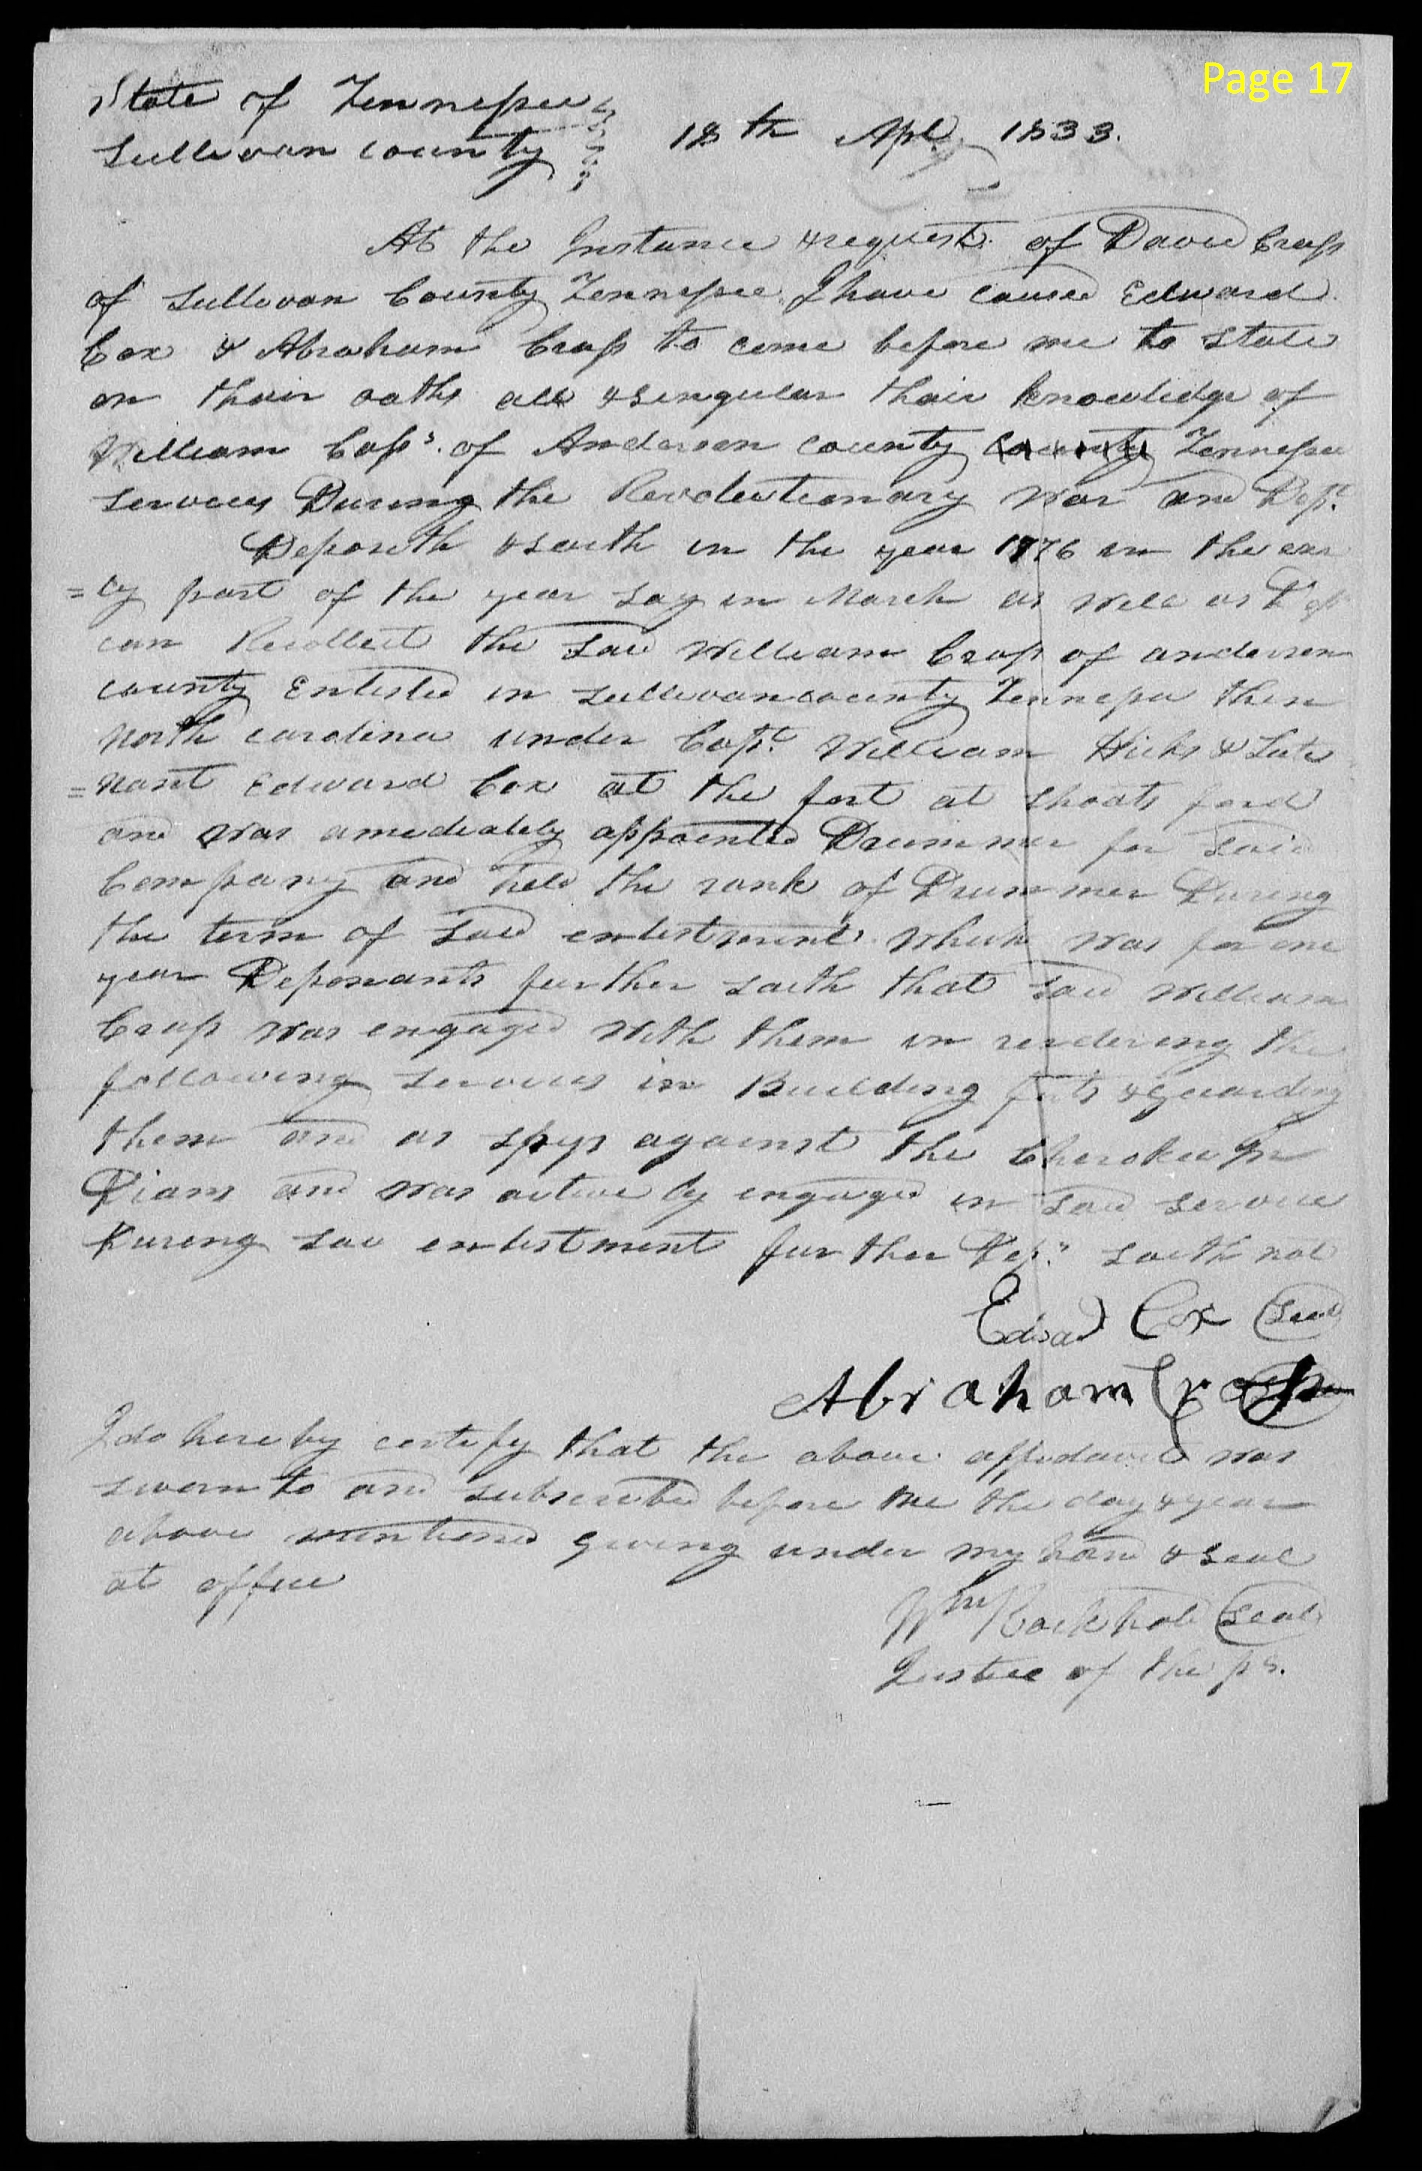 Page 17
State of Tennessee
Sullivan county 18th Apl 1833.
At the Instance & request of David Crass
of Sullivan County Tennessee I have caused Edward
Cox & Abraham Crass to come before me to state
on thair oaths all & singular thair knowledge of
William Cass's of Anderson county county Tennessee
services During the Revolutionary war and Dept
Deposeth & saith in the year 1776 in the ear
=ly part of the year say in March as well as Dept
can Recollect the said William Crass of anderson
county Enlisted in sullivan county Tennessee then
North carolina under Capt William Hicks & Lute
=nant Edward Cox at the fort at shoats ford
and was amediately appointed Drummer for said
Company and held the rank of Drummer During
the term of said enlistment which was for one
year Deponants further saith that said William
Crass was engaged with them in rendering the
following services in Building forts & guarding
them and as spys against the Cherokee In
Dians and was actively engaged in said service
During said enlistment further Depts saith not
Edwad Cox Seal
Abraham Crass
I do hereby certify that the above affidavid was
sworn to and subscribed before me the day & year
above mentioned giving under my hand & seal
at office
Wm Rockhold Seal
Justice of the ps.